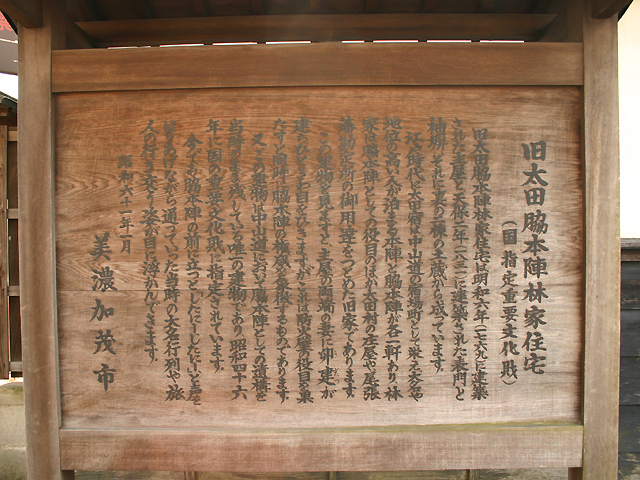 旧太田脇本陣林家住宅
（国指定重要文化財）
旧太田脇本陣林家住宅は明和六年（一七六九）に建築
された主屋と天保二年（一八三一）に建築された表門と
袖塀、それに裏の二棟の土蔵から成っています。
江戸時代、太田宿は中山道の宿場町として栄え大名や
地位の高い人が泊まる本陣と脇本陣が各一軒あり林
家は脇本陣としての役目のほか太田村の庄屋や尾張
藩勘定所の御用達をつとめた旧家であります。
この建物を見ますと、主屋の両端の妻に卯建が
建ちひときわ目をひきますが、これは防火壁の役目を果
たすと同時に脇本陣の権威を象徴するものであります。
又、この建物は中山道において脇本陣としての遺構を
当時のまま残している唯一の建物であり、昭和四十六
年に国の重要文化財に指定されています。
今でも脇本陣の前に立つと「したにー、したにー」と声を
あげながら通っていった当時の大名行列や旅
人の行き来する姿が目に浮かんできます。
昭和六十一年一月
美濃加茂市